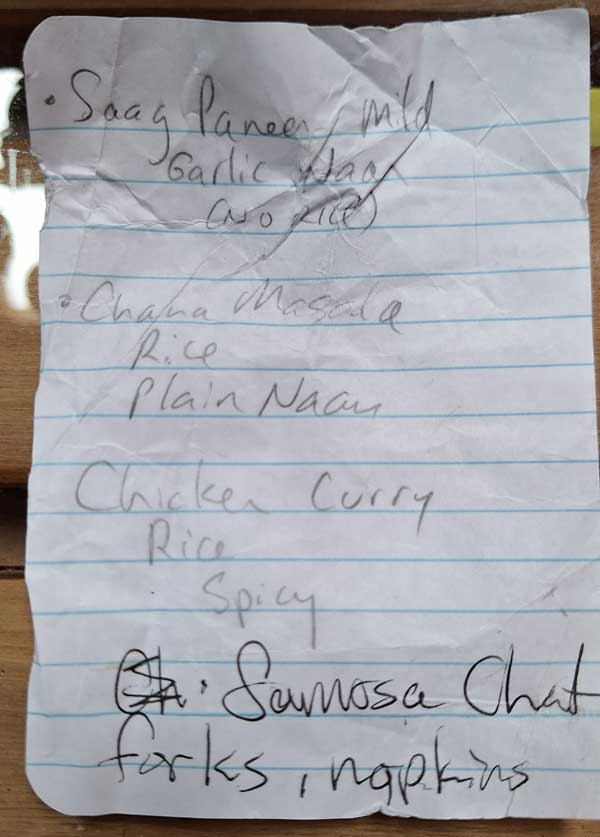 • Saag Paneer / mild
Garlic Naan
(No Rice)
• Chana Masala
Rice
Plain Naan
Chicken Curry
Rice
Spicy
• Samosa Chat
forks, napkins